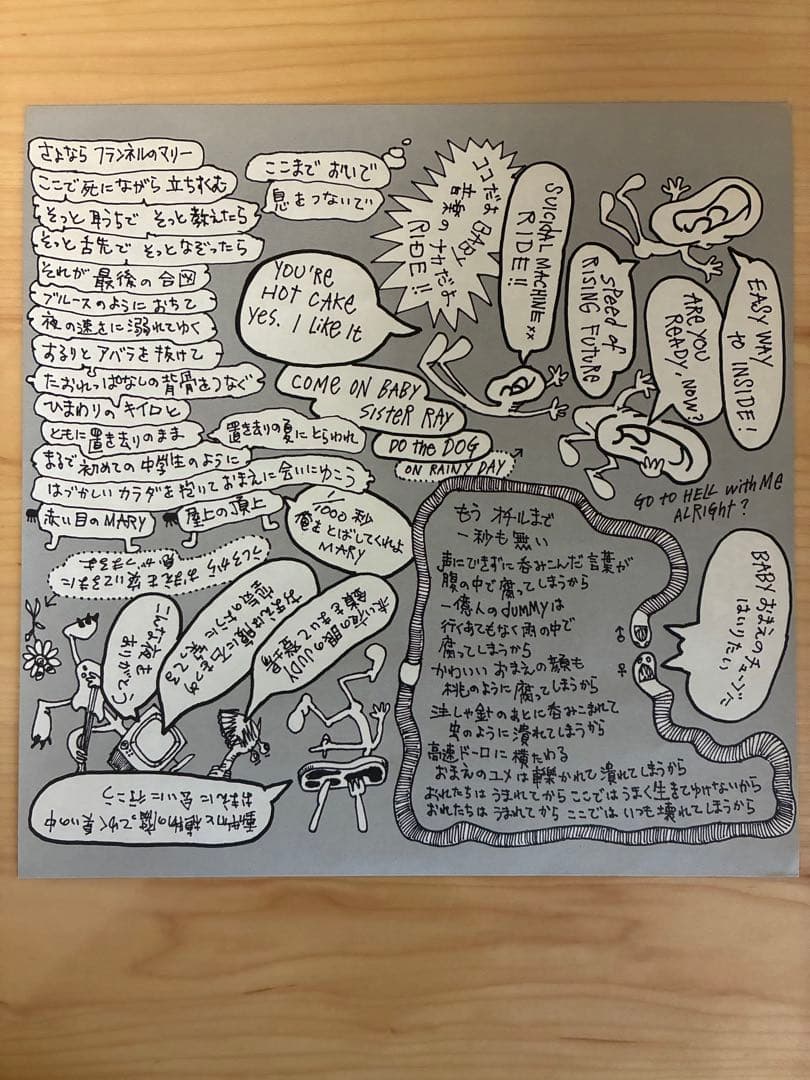 さよなら フランネルのマリー
ここで死にながら 立ちすくむ
そっと耳うちで そっと教えたら
そっと舌先で そっとなぞったら
それが 最後の合図
ブルースのように おちて
夜の速さに溺れてゆく
するりと アバラを 抜けて
たおれっぱなしの背骨をつなぐ
ひまわりの キイロと
ともに置き去りのまま
置き去りの夏にとらわれ
まるで初めての中学生のように
はづかしい カラダを 抱いて おまえに会いにゆこう
赤い目のMARY
屋上の頂上
ここまで おいで
息をつないで
ココだよ BABY
音楽のナカだよ
RIDE!!
SUICIDAL MACHINE xx
RIDE!!
YOU'RE
HOT CAKE
Yes. I LIKE It
COME ON BABY
SISTER RAY
DO the DOG
ON RAINY DAY
SPEED OF
RISING FUTURE
ARE YOU
READY, NOW?
EASY WAY
to INSIDE!
GO TO HELL with ME
ALRIGHT?
1000秒
俺をとばしてくれよ
MARY
うしろから
おまえを抱いてるままに
こんな夜を
ありがとう
おまえは腹に包丁つめ
赤い夜の眼のJUDY
鎖をまいて登場
動物と植物の腐ってゆく臭いの中
おまえに会いに行こう
もう オチルまで
一秒も無い
声にできずに呑みこんだ言葉が
腹の中で腐ってしまうから
一億人のdUMMYは
行くあてもなく雨の中で
腐ってしまうから
かわいい おまえの顔も
桃のように腐ってしまうから
注しゃ針の あとに呑みこまれて
虫のように 潰れてしまうから
高速ドーロに 横たわる
おまえのユメは轢かれて 潰れてしまうから
おれたちは うまれてから ここではうまく生きてゆけないから
おれたちは うまれてから ここでは いつも壊れてしまうから
♂
♀
BABY おまえの
はいりたい